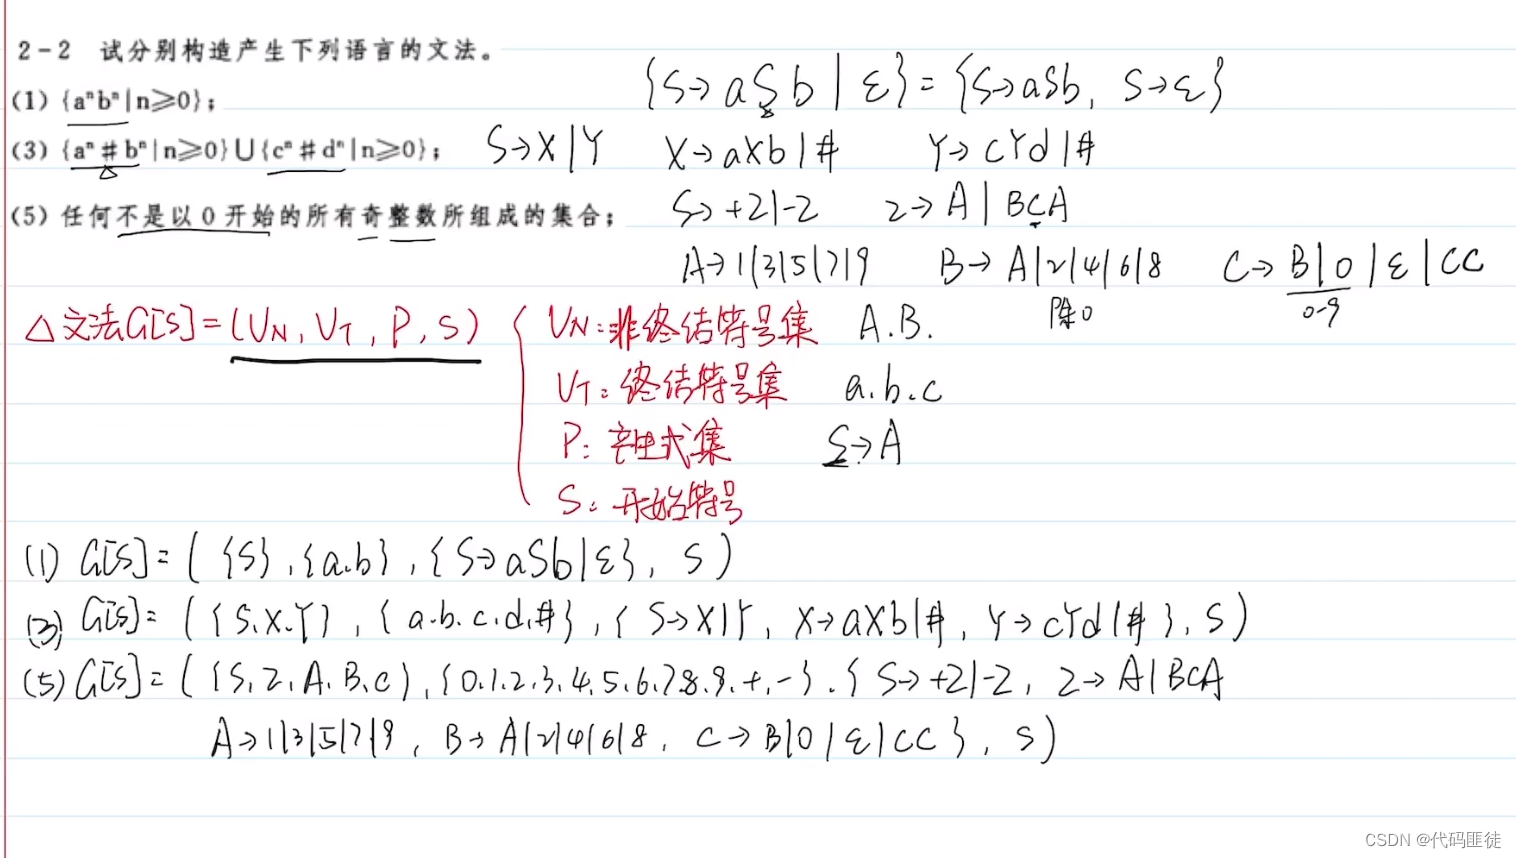 2-2 试分别构造产生下列语言的文法。
{S→aSb|ε}={S→aSb, S→ε}
(1) {aⁿbⁿ|n≥0};
(3) {aⁿ#bⁿ|n≥0}∪{cⁿ#dⁿ|n≥0}; S→X|Y X→aXb|# Y→cYd|#
(5) 任何不是以0开始的所有奇整数所组成的集合; S→+Z|-Z Z→A|BCA
A→1|3|5|7|9 B→A|2|4|6|8 C→B|0|ε|CC
除0 0-9
△文法G[S]=(VN, VT, P, S) { VN:非终结符号集 A.B.
VT:终结符号集 a.b.c
P:产生式集 S→A
S:开始符号
(1) G[S]=({S},{a.b},{S→aSb|ε}, S)
(3) G[S]=({S.X.Y},{a.b.c.d.#},{S→X|Y, X→aXb|#, Y→cYd|#}, S)
(5) G[S]=({S,Z,A.B.C},{0.1.2.3.4.5.6.7.8.9.+.-}.{S→+Z|-Z, Z→A|BCA
A→1|3|5|7|9, B→A|2|4|6|8, C→B|0|ε|CC}, S)
CSDN @代码匪徒